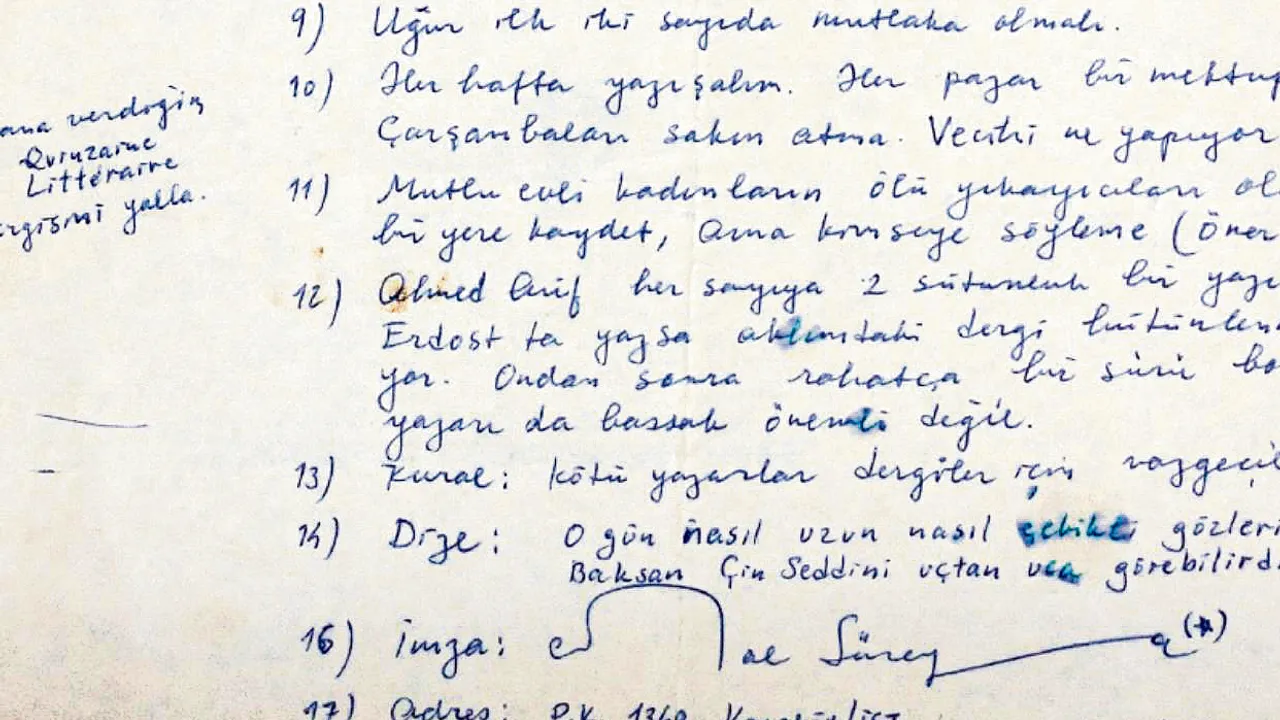 9) Uğur ilk iki sayıda mutlaka olmalı.
10) Her hafta yazışalım. Her pazar bir mektup
Çarşanbaları sakın atma. Vecihi ne yapıyor
11) Mutlu evli kadınların ölü yıkayıcıları ol
bir yere kaydet, ama kimseye söyleme (öner
12) Ahmed Arif her sayıya 2 sütunluk bir yazı
Erdost ta yazsa aklımdaki dergi bütünlen
yor. Ondan sonra rahatça bir sürü bo
yazarı da bassak önemli değil.
13) Kural: kötü yazarlar dergiler için vazgeçil
14) Dize: O gün nasıl uzun nasıl çekikti gözleri
Baksan Çin Seddini uçtan uca görebilird
16) İmza: al Süreya (*)
17) Adres: P.K. 1360
ana verdiğin
Quinzaine
Littéraire
ergisini yolla.